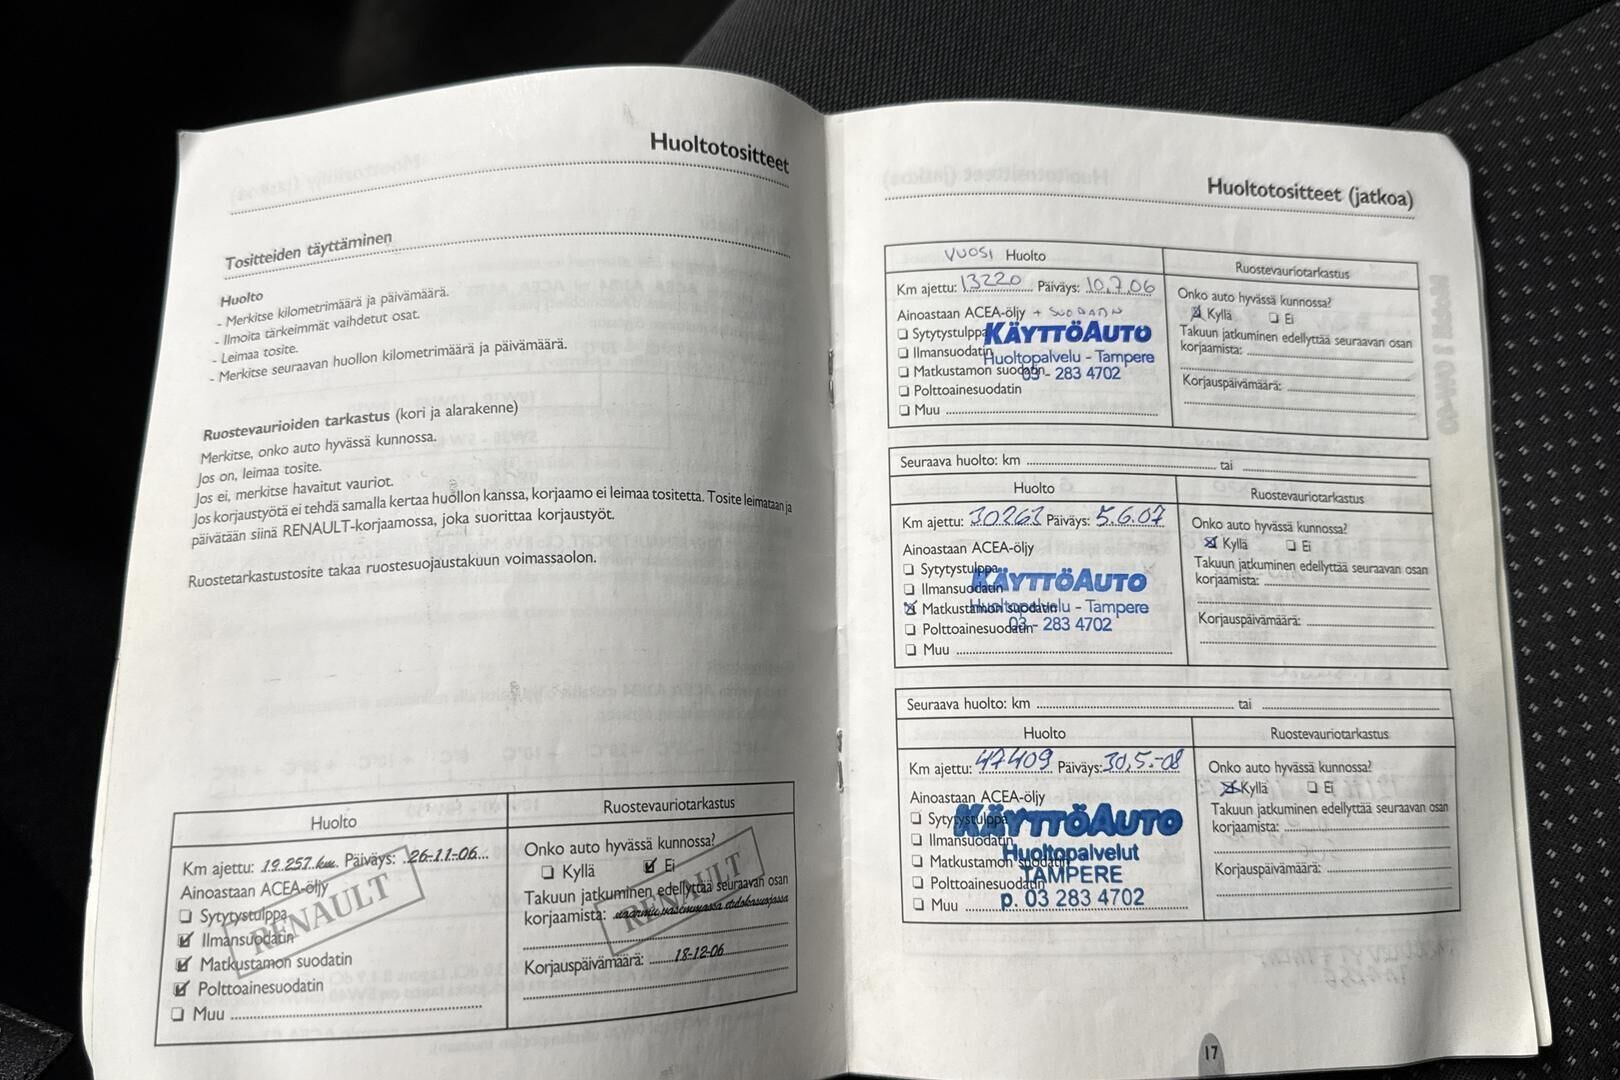 Huoltotositteet
Tositteiden täyttäminen
Huolto
- Merkitse kilometrimäärä ja päivämäärä.
- Ilmoita tärkeimmät vaihdetut osat.
- Leimaa tosite.
- Merkitse seuraavan huollon kilometrimäärä ja päivämäärä.
Ruostevaurioiden tarkastus (kori ja alarakenne)
Merkitse, onko auto hyvässä kunnossa.
Jos on, leimaa tosite.
Jos ei, merkitse havaitut vauriot.
Jos korjaustyötä ei tehdä samalla kertaa huollon kanssa, korjaamo ei leimaa tositetta. Tosite leimataan ja
päivätään siinä RENAULT-korjaamossa, joka suorittaa korjaustyöt.
Ruostetarkastustosite takaa ruostesuojaustakuun voimassaolon.
Huolto
Km ajettu: 19.257 km Päiväys: 26-11-06
Ainoastaan ACEA-öljy
Sytytystulppa
Ilmansuodatin
Matkustamon suodatin
Polttoainesuodatin
Muu
RENAULT
Ruostevauriotarkastus
Onko auto hyvässä kunnossa?
Kyllä Ei
Takuun jatkuminen edellyttää seuraavan osan
korjaamista: naarmu vasemmassa etulokasuojassa
Korjauspäivämäärä: 18-12-06
RENAULT
Huoltotositteet (jatkoa)
VUOSI Huolto
Km ajettu: 13220 Päiväys: 10.7.06
Ainoastaan ACEA-öljy + SUODATIN
Sytytystulppa
Ilmansuodatin
Matkustamon suodatin
Polttoainesuodatin
Muu
KÄYTTÖAUTO
Huoltopalvelu - Tampere
03 - 283 4702
Ruostevauriotarkastus
Onko auto hyvässä kunnossa?
Kyllä Ei
Takuun jatkuminen edellyttää seuraavan osan
korjaamista:
Korjauspäivämäärä:
Seuraava huolto: km tai
Huolto
Km ajettu: 30263 Päiväys: 5.6.07
Ainoastaan ACEA-öljy
Sytytystulppa
Ilmansuodatin
Matkustamon suodatin
Polttoainesuodatin
Muu
KÄYTTÖAUTO
Huoltopalvelu - Tampere
03 - 283 4702
Ruostevauriotarkastus
Onko auto hyvässä kunnossa?
Kyllä Ei
Takuun jatkuminen edellyttää seuraavan osan
korjaamista:
Korjauspäivämäärä:
Seuraava huolto: km tai
Huolto
Km ajettu: 47409 Päiväys: 30.5.-08
Ainoastaan ACEA-öljy
Sytytystulppa
Ilmansuodatin
Matkustamon suodatin
Polttoainesuodatin
Muu
KÄYTTÖAUTO
Huoltopalvelut
TAMPERE
p. 03 283 4702
Ruostevauriotarkastus
Onko auto hyvässä kunnossa?
Kyllä Ei
Takuun jatkuminen edellyttää seuraavan osan
korjaamista:
Korjauspäivämäärä:
17